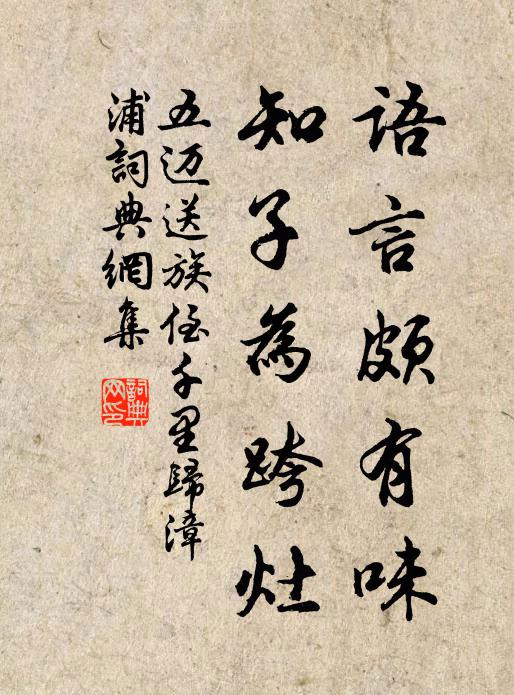 語言頗有味
知子為跨灶
五迈送族侄千里歸漳
浦詞典網集
詞典網印